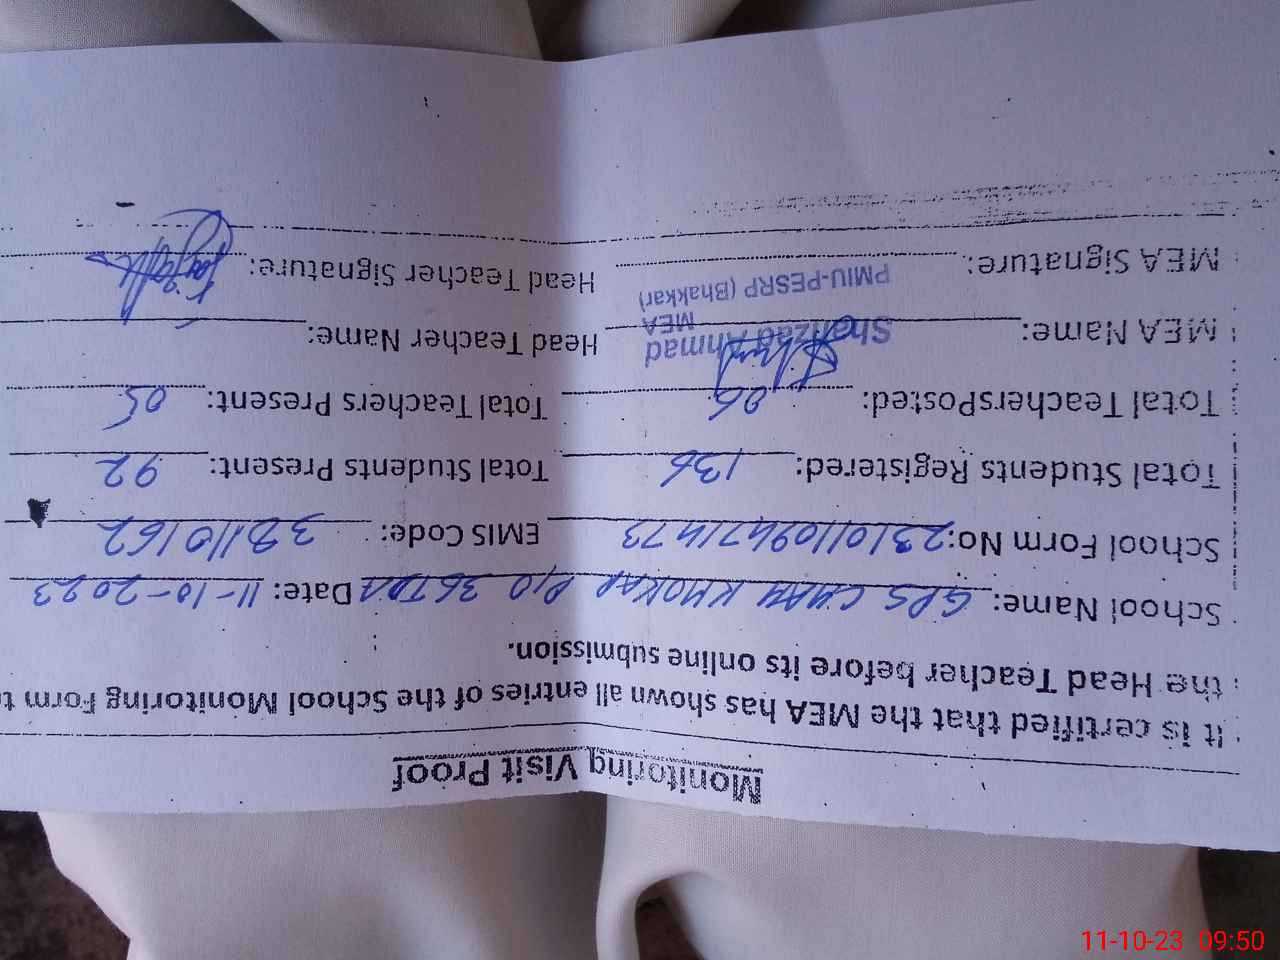 Monitoring Visit Proof
It is certified that the MEA has shown all entries of the School Monitoring Form to
the Head Teacher before its online submission.
School Name: GPS CHAH KHOKAR P/O 36 TDA Date: 11-10-2023
School Form No: 23101109471473 EMIS Code: 38110162
Total Students Registered: 136 Total Students Present: 92
Total TeachersPosted: 06 Total Teachers Present: 05
MEA Name: Shahzad Ahmad Head Teacher Name:
MEA
PMIU-PESRP (Bhakkar)
MEA Signature: Head Teacher Signature:
11-10-23 09:50